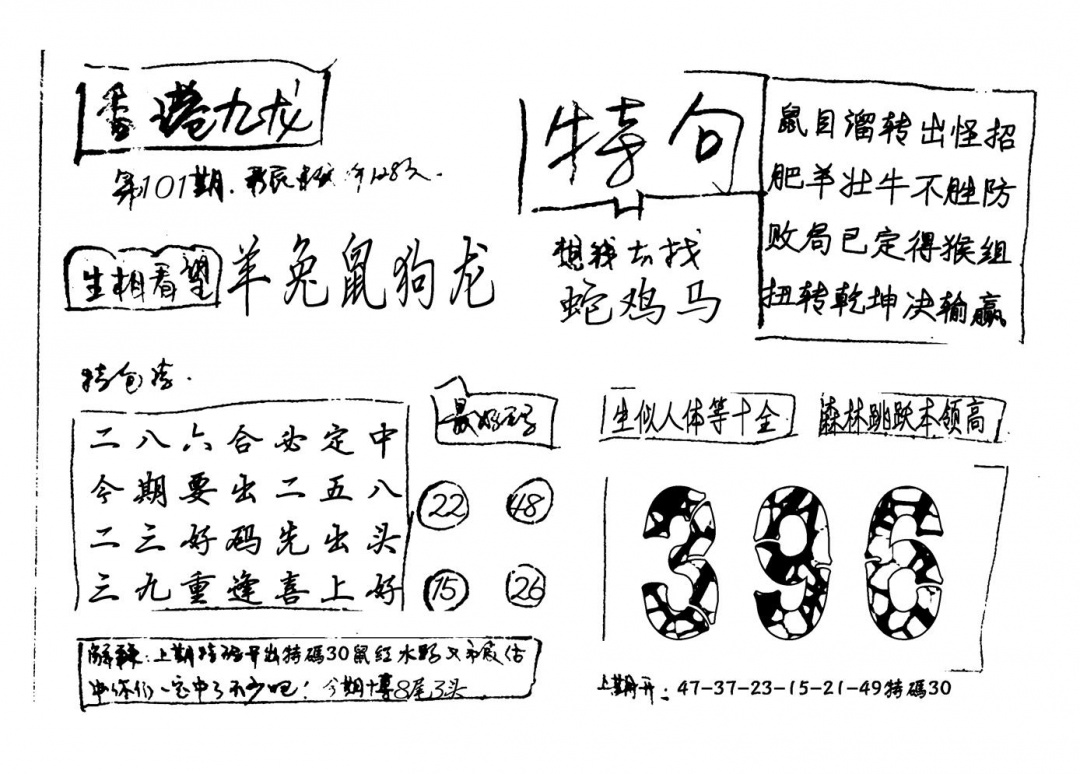 香港九龙
第101期.
生相看望
羊兔鼠狗龙
特句
想我去找
蛇鸡马
鼠目溜转出怪招
肥羊壮牛不胜防
败局已定得猴组
扭转乾坤决输赢
二八六合必定中
今期要出二五八
二三好码先出头
三九重逢喜上好
22 48
15 26
生似人体等十全
森林跳跃本领高
396
解释:上期特码开出特碼30鼠红水
今期博8尾3头
上期开:47-37-23-15-21-49特碼30